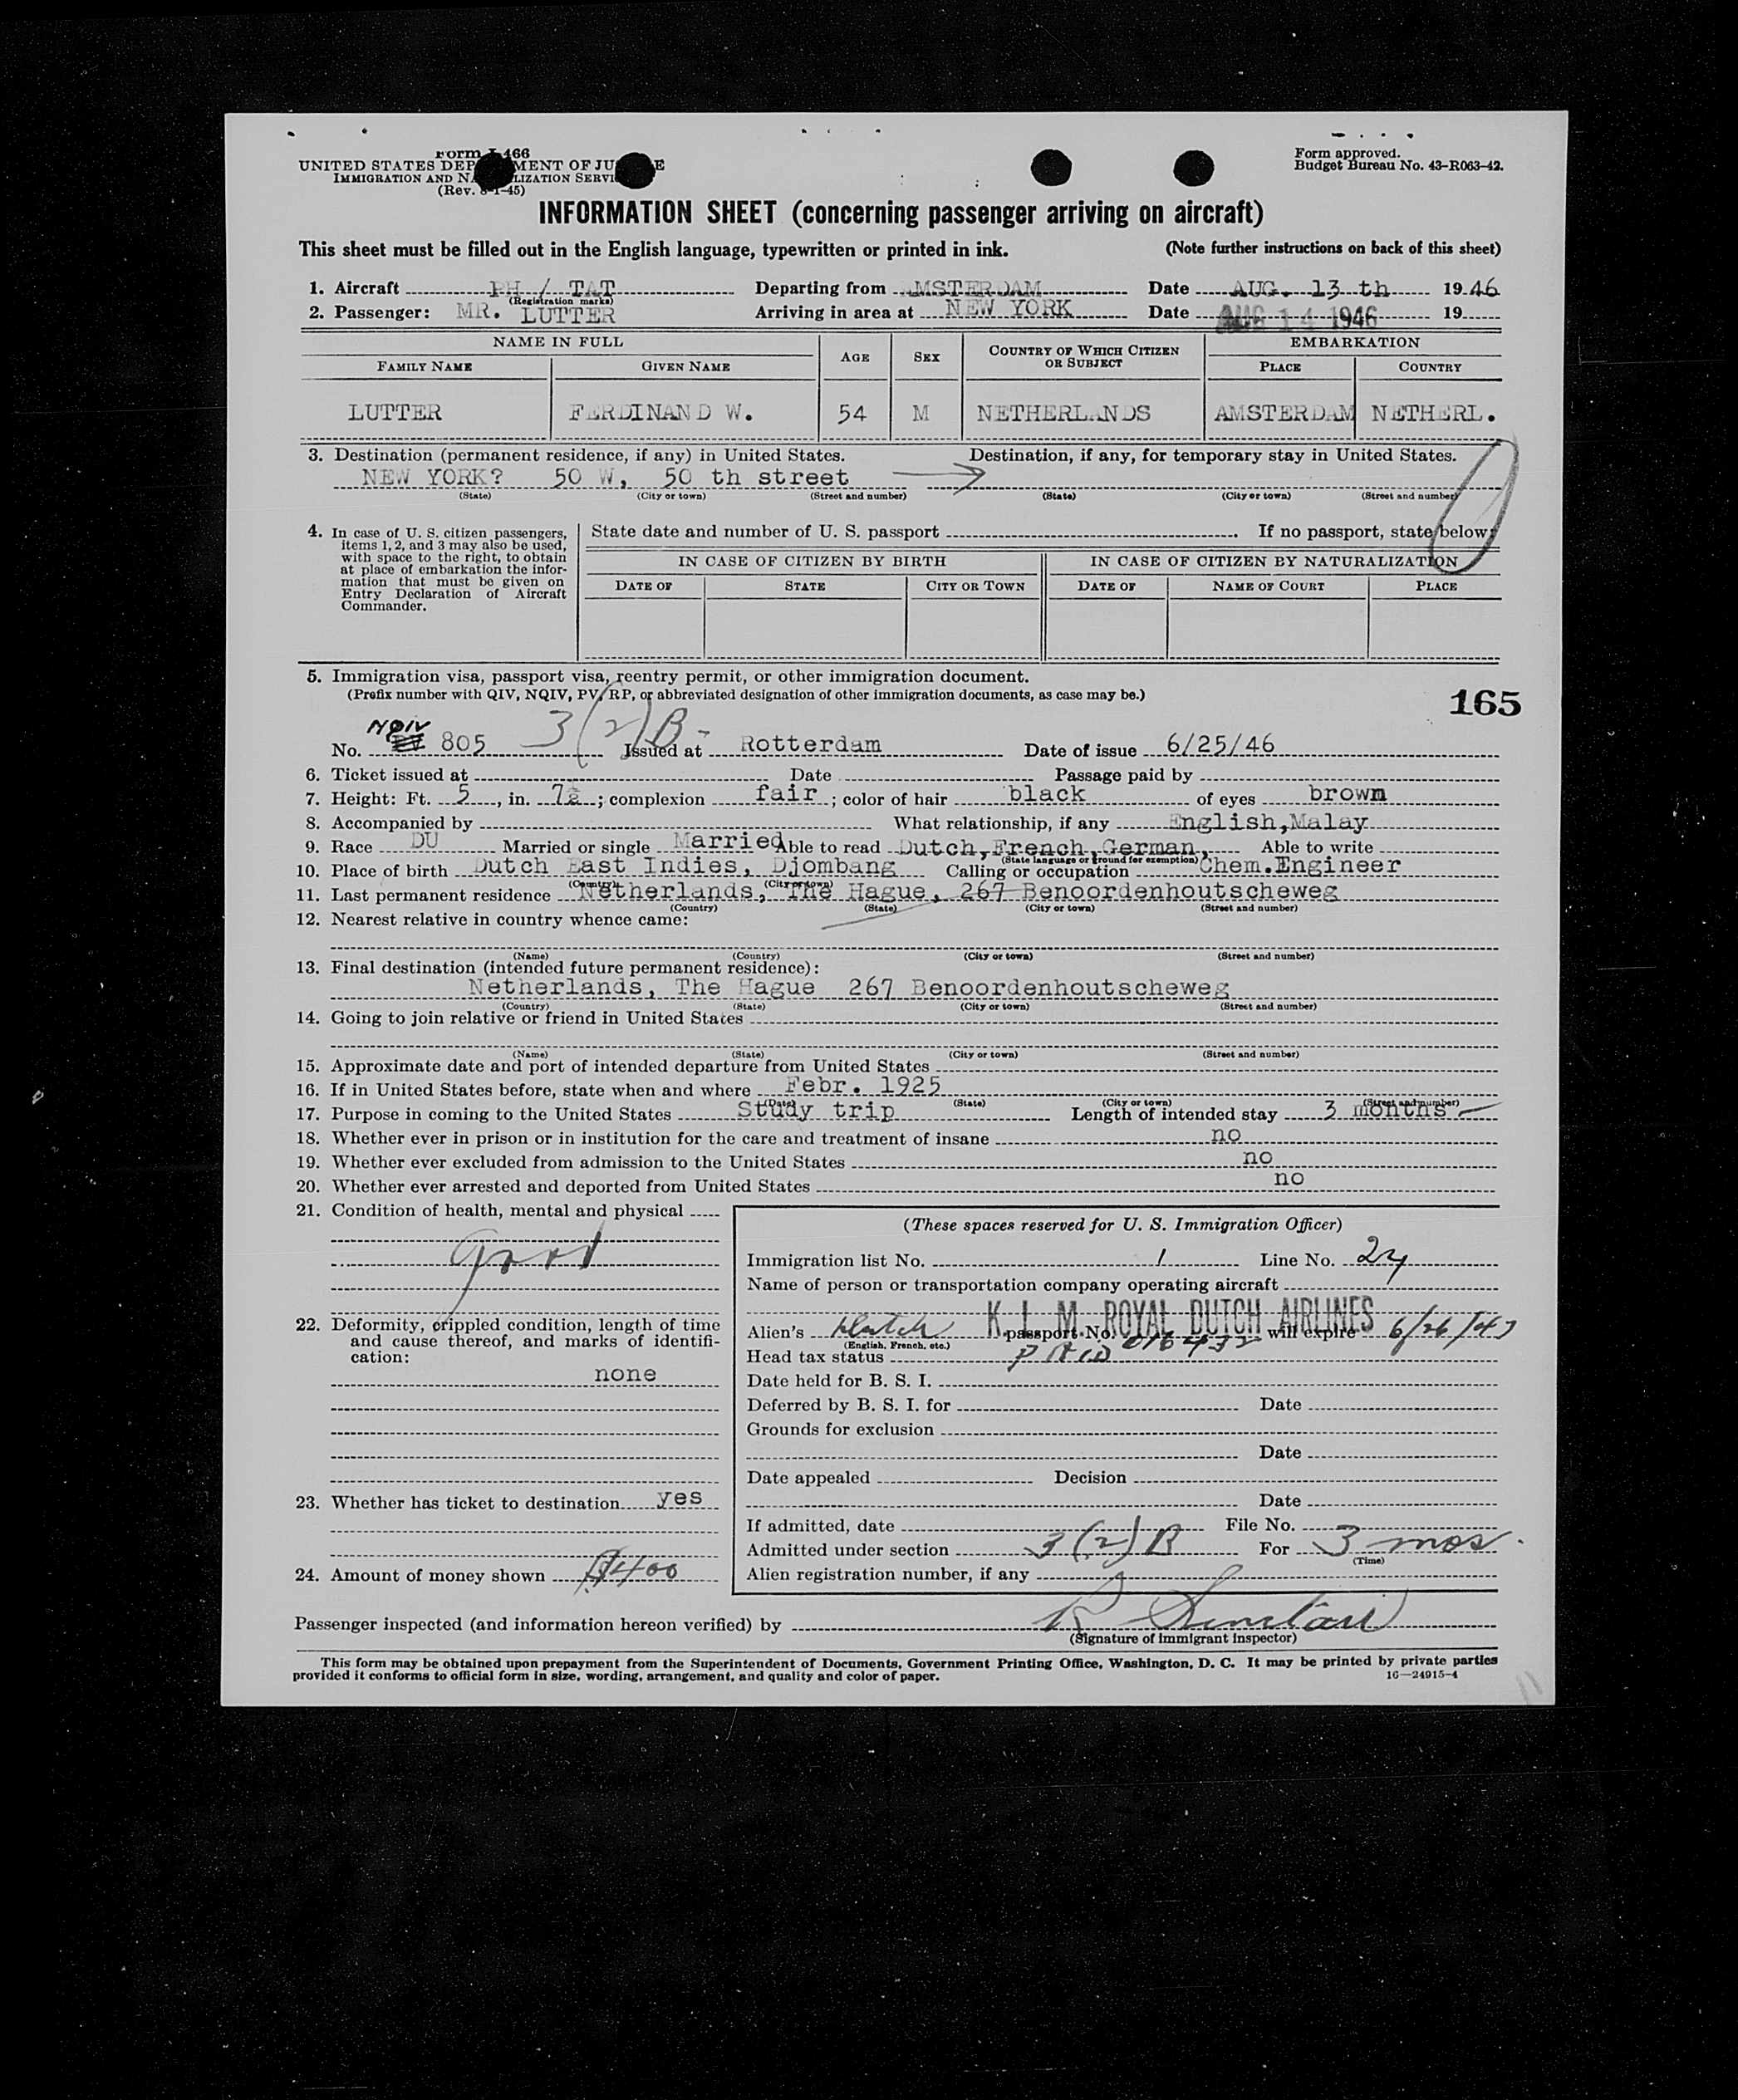 Form I-466
UNITED STATES DEPARTMENT OF JUSTICE
IMMIGRATION AND NATURALIZATION SERVICE
(Rev. 8-1-45)
Form approved.
Budget Bureau No. 43-R063-42.
INFORMATION SHEET (concerning passenger arriving on aircraft)
This sheet must be filled out in the English language, typewritten or printed in ink. (Note further instructions on back of this sheet)
1. Aircraft PH / TAT Departing from AMSTERDAM Date AUG. 13 th 1946
(Registration marks)
2. Passenger: MR. LUTTER Arriving in area at NEW YORK Date AUG 14 1946 19
NAME IN FULL AGE SEX COUNTRY OF WHICH CITIZEN OR SUBJECT EMBARKATION
FAMILY NAME GIVEN NAME PLACE COUNTRY
LUTTER FERDINAND W. 54 M NETHERLANDS AMSTERDAM NETHERL.
3. Destination (permanent residence, if any) in United States. Destination, if any, for temporary stay in United States.
NEW YORK? 50 W, 50 th street
(State) (City or town) (Street and number) (State) (City or town) (Street and number)
4. In case of U. S. citizen passengers, items 1, 2, and 3 may also be used, with space to the right, to obtain at place of embarkation the information that must be given on Entry Declaration of Aircraft Commander.
State date and number of U. S. passport . If no passport, state below:
IN CASE OF CITIZEN BY BIRTH IN CASE OF CITIZEN BY NATURALIZATION
DATE OF STATE CITY OR TOWN DATE OF NAME OF COURT PLACE
5. Immigration visa, passport visa, reentry permit, or other immigration document.
(Prefix number with QIV, NQIV, PV, RP, or abbreviated designation of other immigration documents, as case may be.)
165
NQIV 3(2)B
No. PV 805 Issued at Rotterdam Date of issue 6/25/46
6. Ticket issued at Date Passage paid by
7. Height: Ft. 5, in. 7½; complexion fair; color of hair black of eyes brown
8. Accompanied by What relationship, if any English, Malay
9. Race DU Married or single Married Able to read Dutch, French, German, Able to write
(State language or ground for exemption)
10. Place of birth Dutch East Indies, Djombang Calling or occupation Chem. Engineer
(Country) (City or town)
11. Last permanent residence Netherlands, The Hague, 267 Benoordenhoutscheweg
(Country) (State) (City or town) (Street and number)
12. Nearest relative in country whence came:
(Name) (Country) (City or town) (Street and number)
13. Final destination (intended future permanent residence):
Netherlands, The Hague 267 Benoordenhoutscheweg
(Country) (State) (City or town) (Street and number)
14. Going to join relative or friend in United States
(Name) (State) (City or town) (Street and number)
15. Approximate date and port of intended departure from United States
16. If in United States before, state when and where Febr. 1925
(Date) (State) (City or town) (Street and number)
17. Purpose in coming to the United States Study trip Length of intended stay 3 months
18. Whether ever in prison or in institution for the care and treatment of insane no
19. Whether ever excluded from admission to the United States no
20. Whether ever arrested and deported from United States no
21. Condition of health, mental and physical
good
22. Deformity, crippled condition, length of time and cause thereof, and marks of identification:
none
23. Whether has ticket to destination yes
24. Amount of money shown $400
(These spaces reserved for U. S. Immigration Officer)
Immigration list No. 1 Line No. 24
Name of person or transportation company operating aircraft
K. L. M. ROYAL DUTCH AIRLINES
Alien's Dutch passport No. 016432 will expire 6/26/47
(English, French, etc.)
Head tax status PAID
Date held for B. S. I.
Deferred by B. S. I. for Date
Grounds for exclusion
Date
Date appealed Decision
Date
If admitted, date File No.
Admitted under section 3(2)B For 3 mos.
(Time)
Alien registration number, if any
Passenger inspected (and information hereon verified) by R Sinclair
(Signature of Immigrant Inspector)
This form may be obtained upon prepayment from the Superintendent of Documents, Government Printing Office, Washington, D. C. It may be printed by private parties
provided it conforms to official form in size, wording, arrangement, and quality and color of paper. 16—24915-4